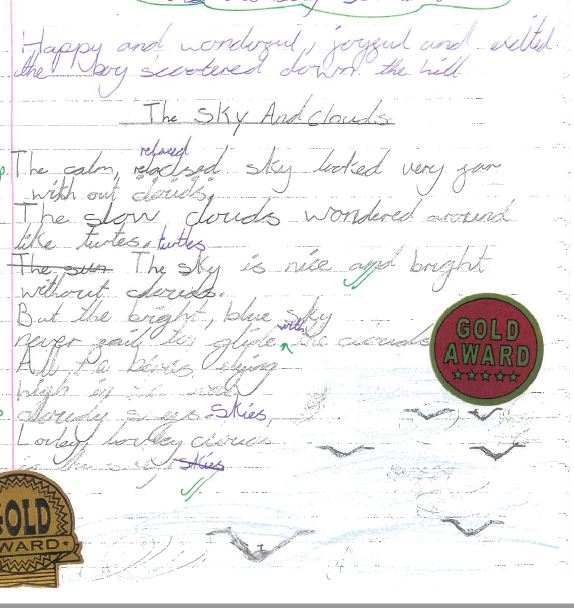 Happy and wonderful, joyful and exited
the boy scootered down the hill
The Sky And clouds
relaxed
The calm, sky looked very far
with out clouds.
The slow clouds wondered around
like turtes. turtles
The sun The sky is nice and bright
without clouds.
But the bright, blue sky
with
never fail to glide the clouds
All flying
high in
cloudy skies,
Lovley lovley clouds
in the skies
GOLD
AWARD
GOLD
AWARD